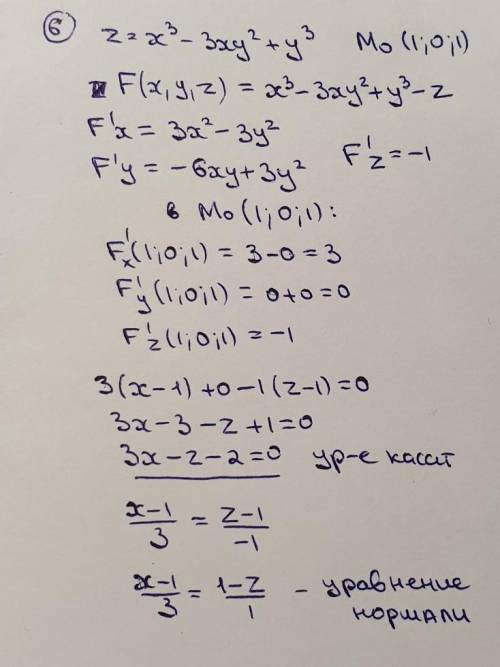 6 z = x³ - 3xy² + y³ M₀(1;0;1)
F(x,y,z) = x³-3xy²+y³-z
F'x = 3x²-3y²
F'z = -1
F'y = -6xy+3y²
в M₀(1;0;1):
F'x(1;0;1) = 3-0 = 3
F'y(1;0;1) = 0+0=0
F'z(1;0;1) = -1
3(x-1)+0-1(z-1)=0
3x-3-z+1=0
3x-z-2=0 ур-е касат
x-1/3 = z-1/-1
x-1/3 = 1-z/1 - уравнение
нормали